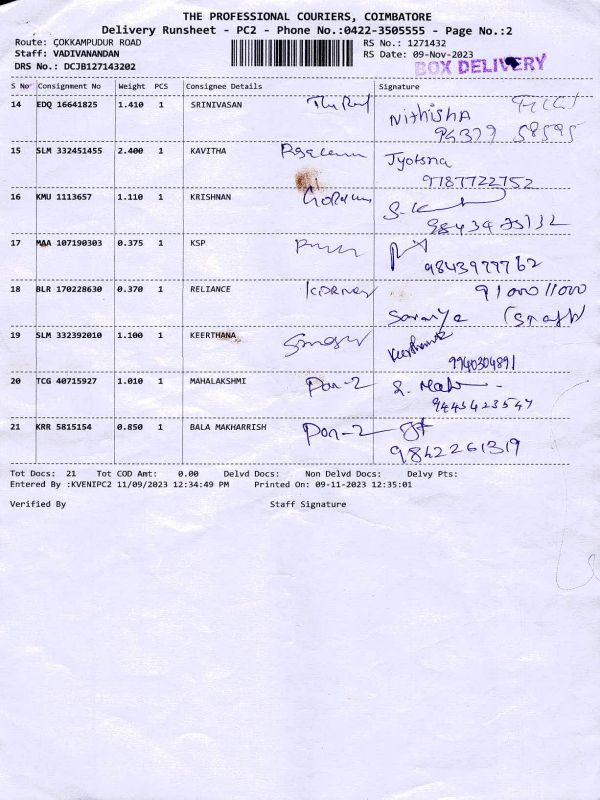 THE PROFESSIONAL COURIERS, COIMBATORE
Delivery Runsheet - PC2 - Phone No.:0422-3505555 - Page No.:2
Route: COKKAMPUDUR ROAD
RS No.: 1271432
Staff: VADIVANANDAN
RS Date: 09-Nov-2023
DRS No.: DCJB127143202
BOX DELIVERY
S No Consignment No Weight PCS Consignee Details Signature
14 EDQ 16641825 1.410 1 SRINIVASAN
Nithisha
15 SLM 332451455 2.400 1 KAVITHA
Jyotsna
9787722752
16 KMU 1113657 1.110 1 KRISHNAN
17 MAA 107190303 0.375 1 KSP
9843979762
18 BLR 170228630 0.370 1 RELIANCE
Saranya (Staff)
19 SLM 332392010 1.100 1 KEERTHANA
Keerthana
9940304891
20 TCG 40715927 1.010 1 MAHALAKSHMI Pon-2
9445423547
21 KRR 5815154 0.850 1 BALA MAKHARRISH Pon-2
9842261319
Tot Docs: 21 Tot COD Amt: 0.00 Delvd Docs: Non Delvd Docs: Delvy Pts:
Entered By :KVENIPC2 11/09/2023 12:34:49 PM Printed On: 09-11-2023 12:35:01
Verified By Staff Signature